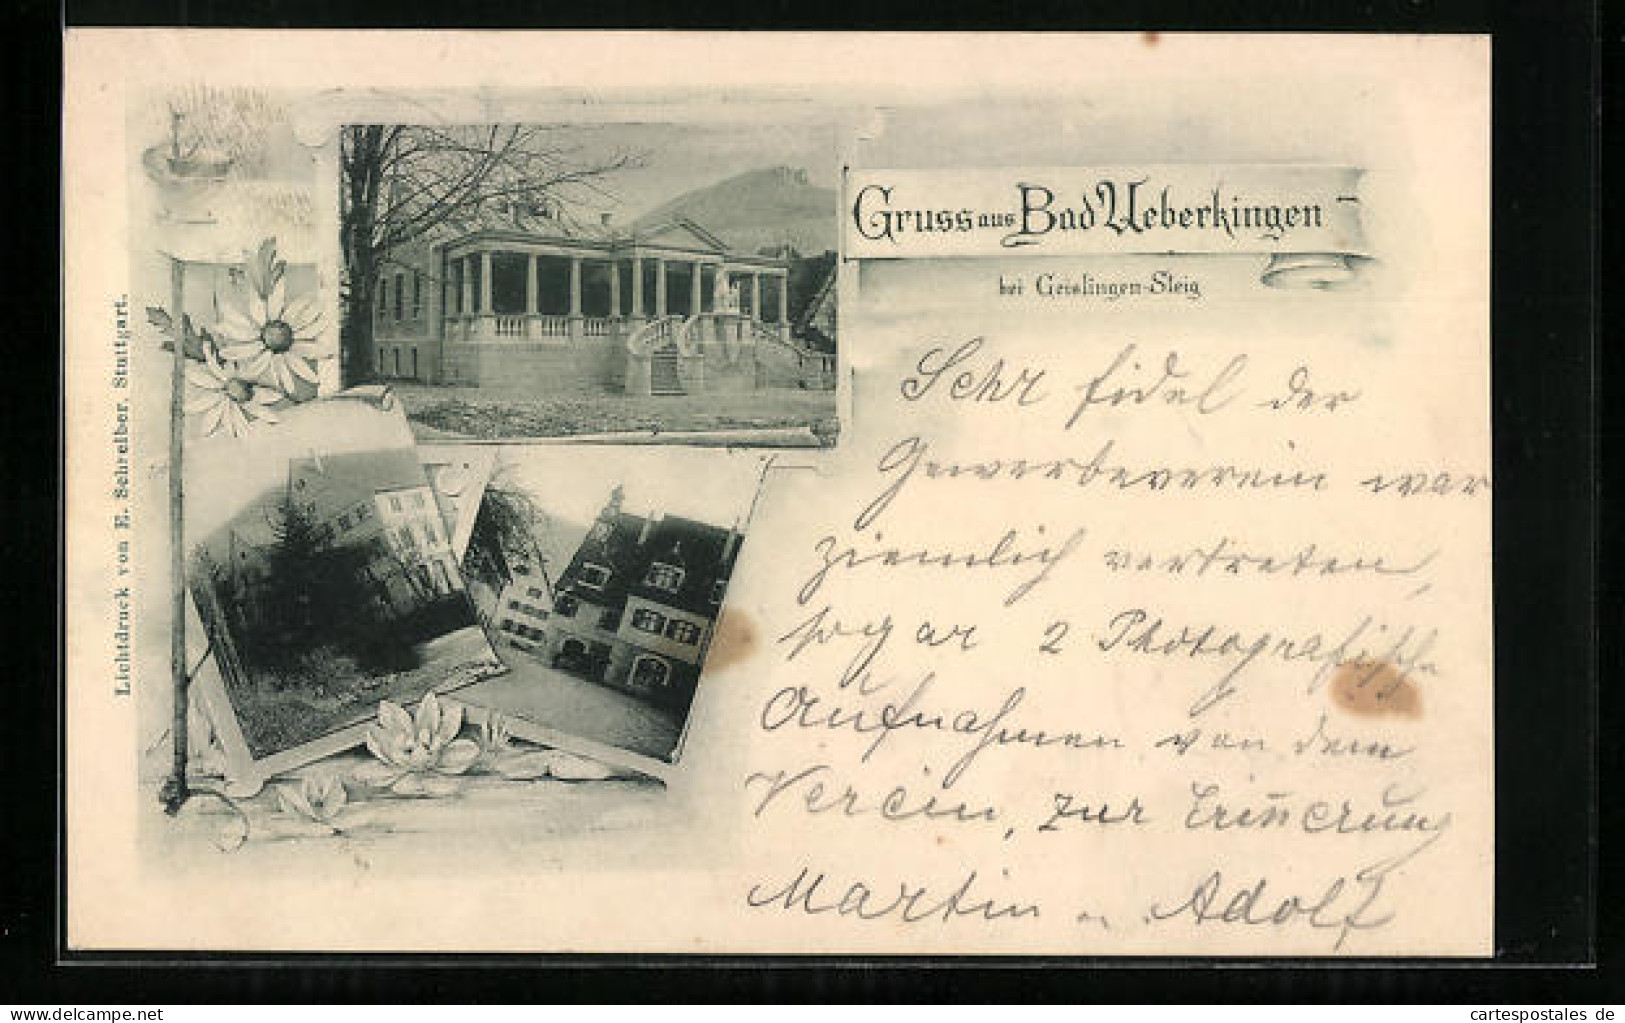 Gruss aus Bad Ueberkingen
bei Geislingen-Steig
Sehr fidel der
Gewerbeverein war
ziemlich vertreten,
sogar 2 Photografische
Aufnahmen von dem
Verein, zur Erinnerung
Martin u. Adolf
Lichtdruck von E. Schreiber, Stuttgart.
delcampe.net
cartespostales de